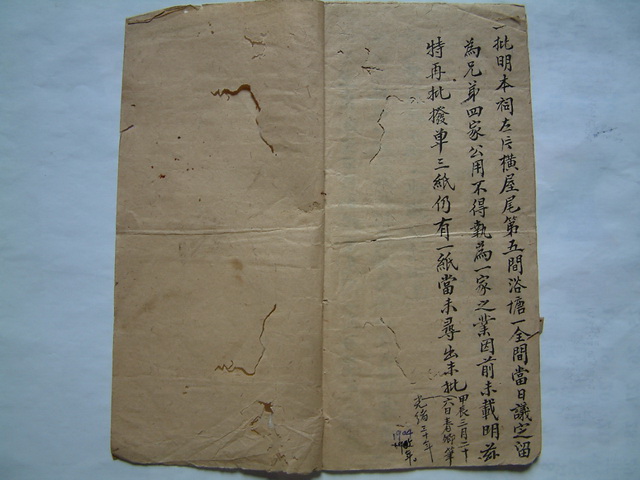 一批明本祠左片橫屋尾第五間浴塘一全間當日議定留
為兄弟四家公用不得執為一家之業因前未載明茲
特再批撥單三紙仍有一紙當未尋出未批
甲辰三月二十
六日春卿筆
光緒三十年
1904年